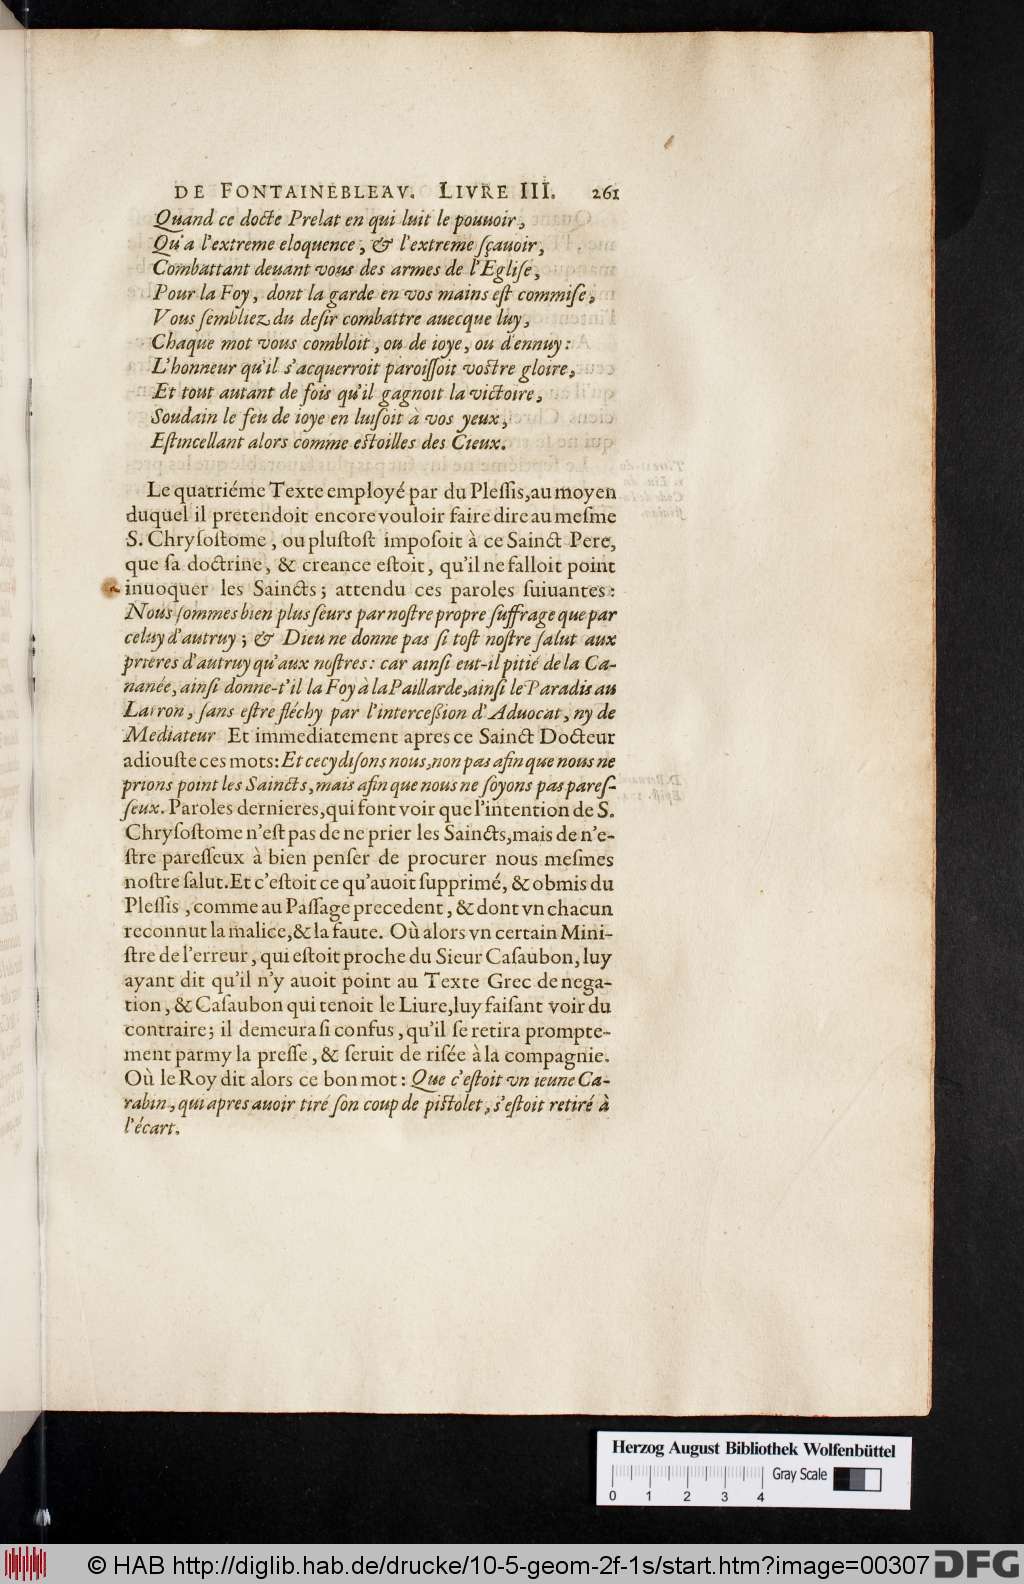 DE FONTAINEBLEAV. LIVRE III. 261
Quand ce docte Prelat en qui luit le pouuoir,
Qu'a l'extreme eloquence, & l'extreme ſçauoir,
Combattant deuant vous des armes de l'Egliſe,
Pour la Foy, dont la garde en vos mains eſt commiſe,
Vous ſembliez du deſir combattre auecque luy,
Chaque mot vous combloit, ou de ioye, ou d'ennuy:
L'honneur qu'il s'acquerroit paroiſſoit voſtre gloire,
Et tout autant de fois qu'il gagnoit la victoire,
Soudain le feu de ioye en luiſoit à vos yeux,
Eſtincellant alors comme eſtoilles des Cieux.
Le quatriéme Texte employé par du Pleſſis, au moyen
duquel il pretendoit encore vouloir faire dire au meſme
S. Chryſoſtome, ou pluſtoſt impoſoit à ce Sainct Pere,
que ſa doctrine, & creance eſtoit, qu'il ne falloit point
inuoquer les Saincts; attendu ces paroles ſuiuantes:
Nous ſommes bien plus ſeurs par noſtre propre ſuffrage que par
celuy d'autruy; & Dieu ne donne pas ſi toſt noſtre ſalut aux
prieres d'autruy qu'aux noſtres: car ainſi eut-il pitié de la Ca-
nanée, ainſi donne-t'il la Foy à la Paillarde, ainſi le Paradis au
Larron, ſans eſtre fléchy par l'interceßion d'Aduocat, ny de
Mediateur Et immediatement apres ce Sainct Docteur
adiouſte ces mots: Et cecy diſons nous, non pas afin que nous ne
prions point les Saincts, mais afin que nous ne ſoyons pas pareſ-
ſeux. Paroles dernieres, qui font voir que l'intention de S.
Chryſoſtome n'eſt pas de ne prier les Saincts, mais de n'e-
ſtre pareſſeux à bien penſer de procurer nous meſmes
noſtre ſalut. Et c'eſtoit ce qu'auoit ſupprimé, & obmis du
Pleſſis, comme au Paſſage precedent, & dont vn chacun
reconnut la malice, & la faute. Où alors vn certain Mini-
ſtre de l'erreur, qui eſtoit proche du Sieur Caſaubon, luy
ayant dit qu'il n'y auoit point au Texte Grec de nega-
tion, & Caſaubon qui tenoit le Liure, luy faiſant voir du
contraire; il demeura ſi confus, qu'il ſe retira prompte-
ment parmy la preſſe, & ſeruit de riſée à la compagnie.
Où le Roy dit alors ce bon mot: Que c'eſtoit vn ieune Ca-
rabin, qui apres auoir tiré ſon coup de piſtolet, s'eſtoit retiré à
l'écart.
Herzog August Bibliothek Wolfenbüttel
Gray Scale
0 1 2 3 4
© HAB http://diglib.hab.de/drucke/10-5-geom-2f-1s/start.htm?image=00307 DFG